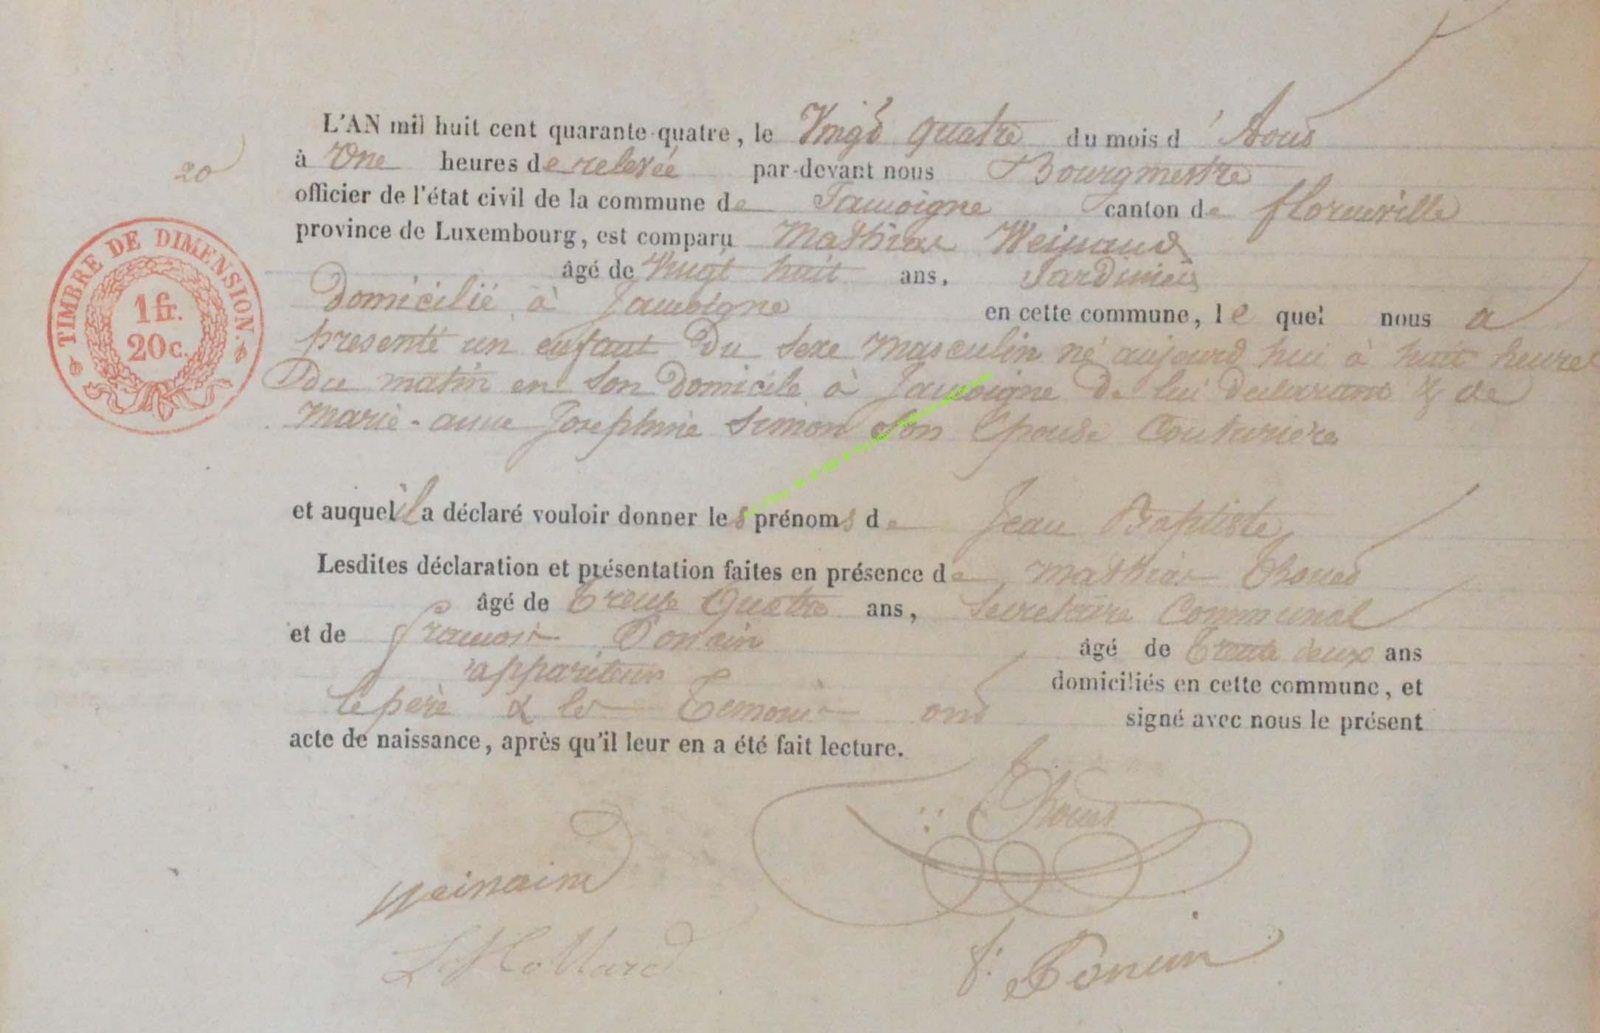 L'AN mil huit cent quarante-quatre, le Vingt quatre du mois d'Aout
20
à Une heures de relevée par-devant nous Bourgmestre
officier de l'état civil de la commune de Jamoigne canton de florenville
province de Luxembourg, est comparu Mathias Weinand
âgé de Vingt huit ans, Jardinier
domicilié à Jamoigne en cette commune, lequel nous a
présenté un enfant du sexe masculin né aujourd'hui à huit heures
du matin en son domicile à Jamoigne de lui déclarant & de
Marie-anne Josephine Simon son Epouse Couturière
et auquel il a déclaré vouloir donner les prénoms de Jean Baptiste
Lesdites déclaration et présentation faites en présence de Mathias
âgé de Trente Quatre ans, Secretaire Communal
et de francois Ponsin âgé de Trente deux ans
appariteur domiciliés en cette commune, et
le père & les Temoins ont signé avec nous le présent
acte de naissance, après qu'il leur en a été fait lecture.
TIMBRE DE DIMENSION.
1 fr.
20 c.
Weinand